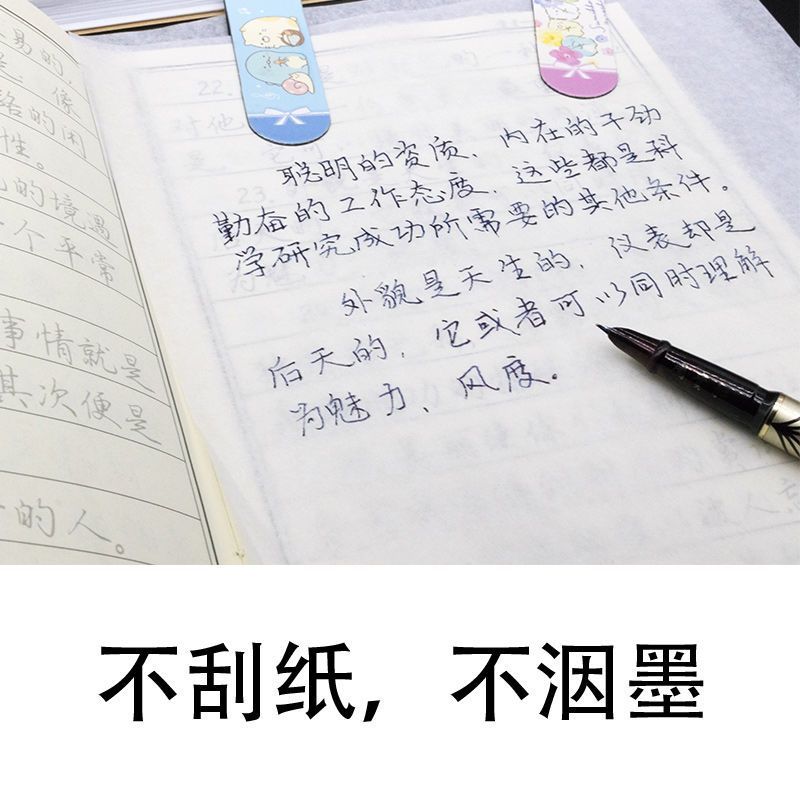 易的，
络的闭
性。
的境遇
个平常
事情就是
其次便是
的人。
22.
对他
23.
聪明的资质、内在的干劲
勤奋的工作态度，这些都是科
学研究成功所需要的其他条件。
外貌是天生的，仪表却是
后天的，它或者可以同时理解
为魅力、风度。
不刮纸，不洇墨